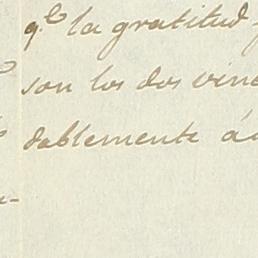 q.e la gratitud
son los dos vinc
dablemente á